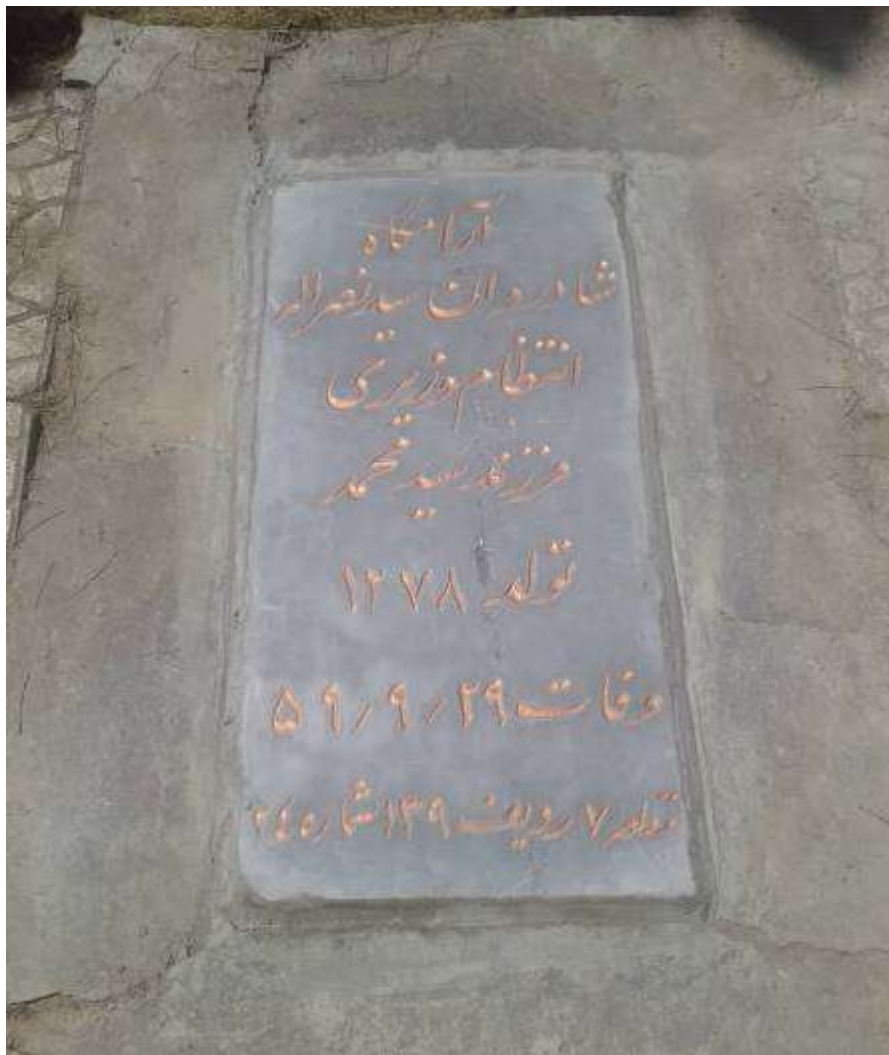 آرامگاه
شادروان سید نصراله
انتظام وزیری
فرزند سید محمد
تولد ۱۲۷۸
وفات ۵۹/۹/۲۹
قطعه ۷ ردیف ۱۳۹ شماره ۲۴